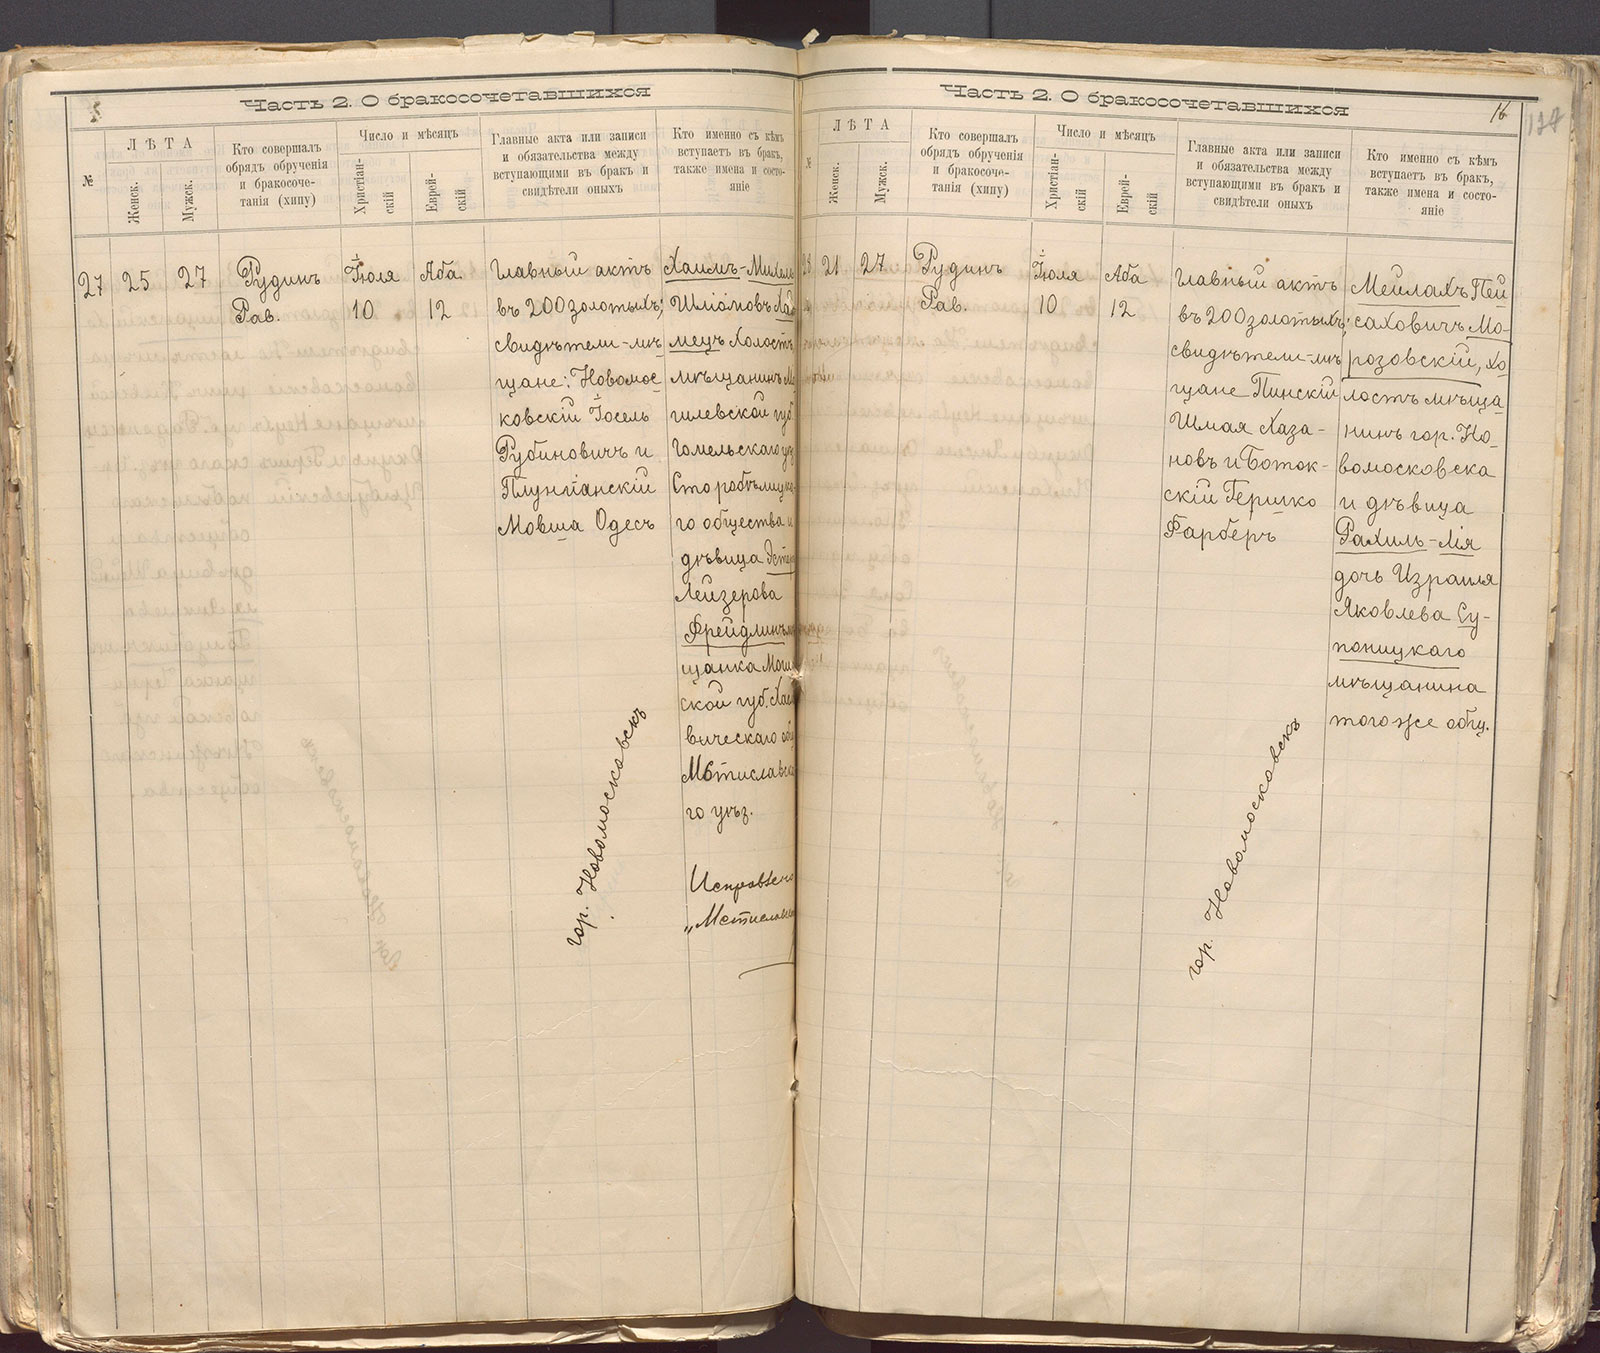 Часть 2. О бракосочетавшихся
№
ЛѢТА
Женск.
Мужск.
Кто совершалъ
обрядъ обрученія
и бракосоче-
танія (хипу)
Число и мѣсяцъ
Христіан-
скій
Еврей-
скій
Главные акта или записи
и обязательства между
вступающими въ бракъ и
свидѣтели оныхъ
Кто именно съ кѣмъ
вступаетъ въ бракъ,
также имена и состо-
яніе
27
25
27
Рудинъ
Рав.
Іюля
10
Аба
12
Главный актъ
въ 200 золотыхъ;
свидѣтели-мѣ
щане: Новомос
ковскій Іосель
Рубиновичъ и
Плунгіанскій
Мовша Одесъ
гор. Новомосковскъ
Хаимъ-Михель
Шліомовъ Хай
мецъ холостъ
мѣщанинъ Мо
гилевской губ.
Гомельскаго уѣ
го общества и
дѣвица Эстер
Лейзерова
Фрейдлинъ мѣ
щанка Моги
ской губ. Хас
вическаго об
Мстиславска
го уѣз.
Исправлено
„Мстиславск
Часть 2. О бракосочетавшихся
16
№
ЛѢТА
Женск.
Мужск.
Кто совершалъ
обрядъ обрученія
и бракосоче-
танія (хипу)
Число и мѣсяцъ
Христіан-
скій
Еврей-
скій
Главные акта или записи
и обязательства между
вступающими въ бракъ и
свидѣтели оныхъ
Кто именно съ кѣмъ
вступаетъ въ бракъ,
также имена и состо-
яніе
28
21
27
Рудинъ
Рав.
Іюля
10
Аба
12
Главный актъ
въ 200 золотыхъ;
свидѣтели-мѣ
щане Пинскій
Шмая Хаза-
новъ и Боток-
скій Гершко
Фарберъ
гор. Новомосковскъ
Мейлахъ Пей
саховичъ Мо-
розовскій, хо-
лостъ мѣща
нинъ гор. Но-
вомосковска
и дѣвица
Рахиль-Лія
дочь Израиля
Яковлева Су-
поницкаго
мѣщанина
того же общ.